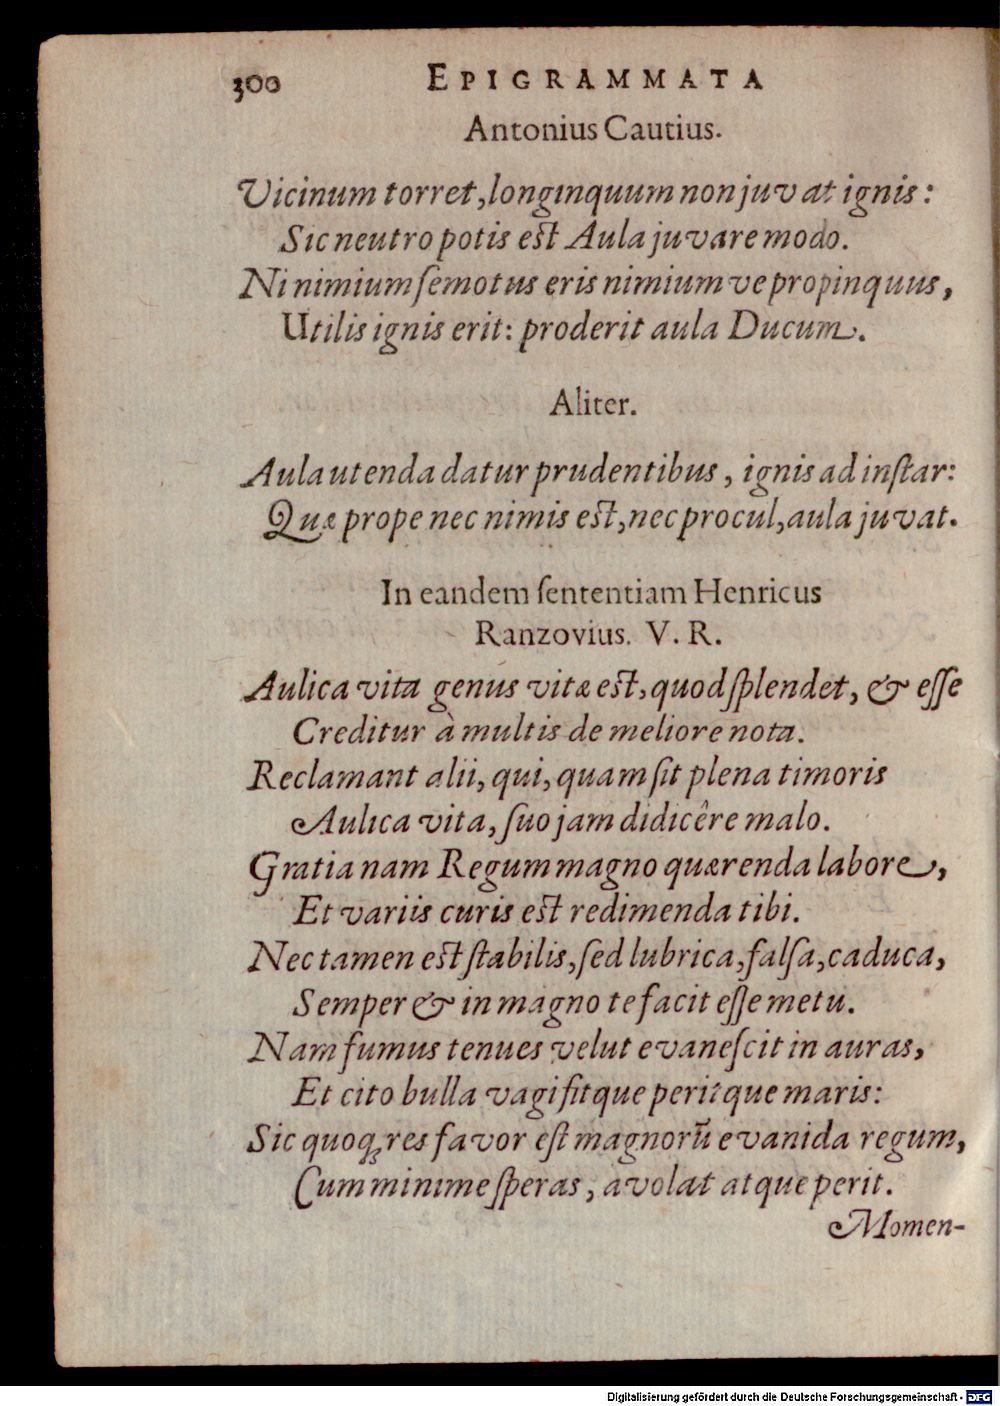 300 EPIGRAMMATA
Antonius Cautius.
Vicinum torret, longinquum non juvat ignis:
Sic neutro potis est Aula juvare modo.
Ni nimium ſemotus eris nimiumve propinquus,
Utilis ignis erit: proderit aula Ducum.
Aliter.
Aula utenda datur prudentibus, ignis ad inſtar:
Quæ prope nec nimis est, nec procul, aula juvat.
In eandem ſententiam Henricus
Ranzovius. V. R.
Aulica vita genus vitæ est, quod ſplendet, & eſſe
Creditur à multis de meliore nota.
Reclamant alii, qui, quam ſit plena timoris
Aulica vita, ſuo jam didicêre malo.
Gratia nam Regum magno quærenda labore,
Et variis curis est redimenda tibi.
Nec tamen est ſtabilis, ſed lubrica, falſa, caduca,
Semper & in magno te facit eſſe metu.
Nam fumus tenues velut evaneſcit in auras,
Et cito bulla vagi fitque peritque maris:
Sic quoqꝫ res favor eſt magnorũ evanida regum,
Cum minime ſperas, avolat atque perit.
Momen-
Digitalisierung gefördert durch die Deutsche Forschungsgemeinschaft - DFG